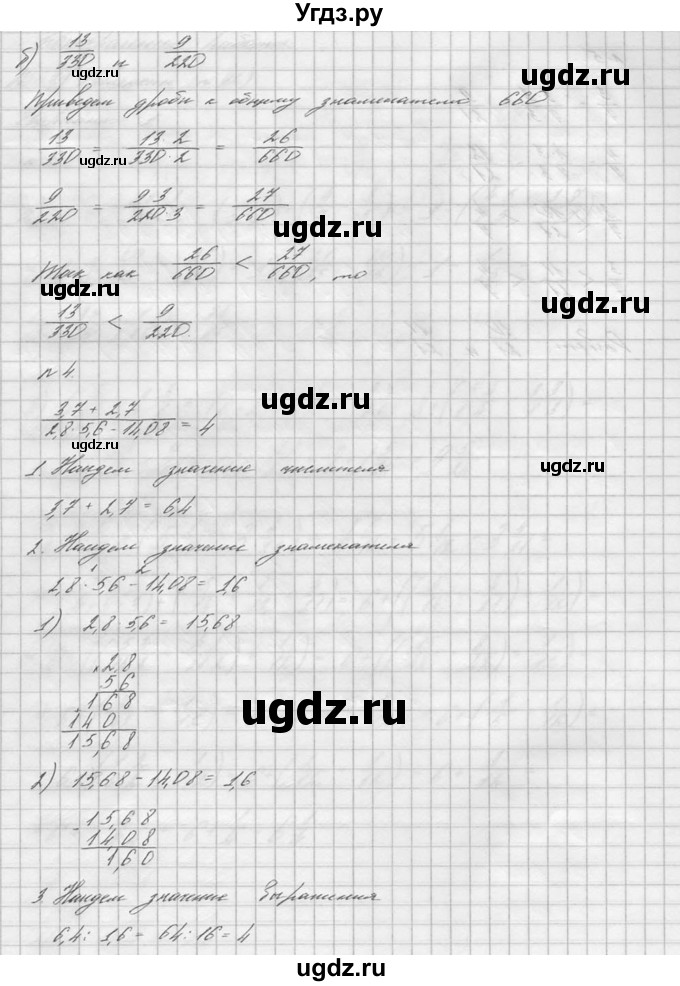 Угдз.ру
б) 13/330 и 9/220
Приведем дроби к общему знаменателю 660
13/330 = 13·2/330·2 = 26/660
9/220 = 9·3/220·3 = 27/660
Так как 26/660 < 27/660, то
13/330 < 9/220.
№4.
3,7 + 2,7/2,8·5,6 – 14,08 = 4
1. Найдем значение числителя
3,7 + 2,7 = 6,4
2. Найдем значение знаменателя
2,8 ·¹ 5,6 –² 14,08 = 1,6
1) 2,8·5,6 = 15,68
×2,8
5,6
+168
140
15,68
2) 15,68 – 14,08 = 1,6
-15,68
14,08
1,60
3. Найдем значение выражения
6,4 : 1,6 = 64 : 16 = 4
ugdz.ru
ugdz.ru
ugdz.ru
ugdz.ru
ugdz.ru
ugdz.ru
ugdz.ru
ugdz.ru
ugdz.ru
ugdz.ru
ugdz.ru
ugdz.ru
ugdz.ru
ugdz.ru